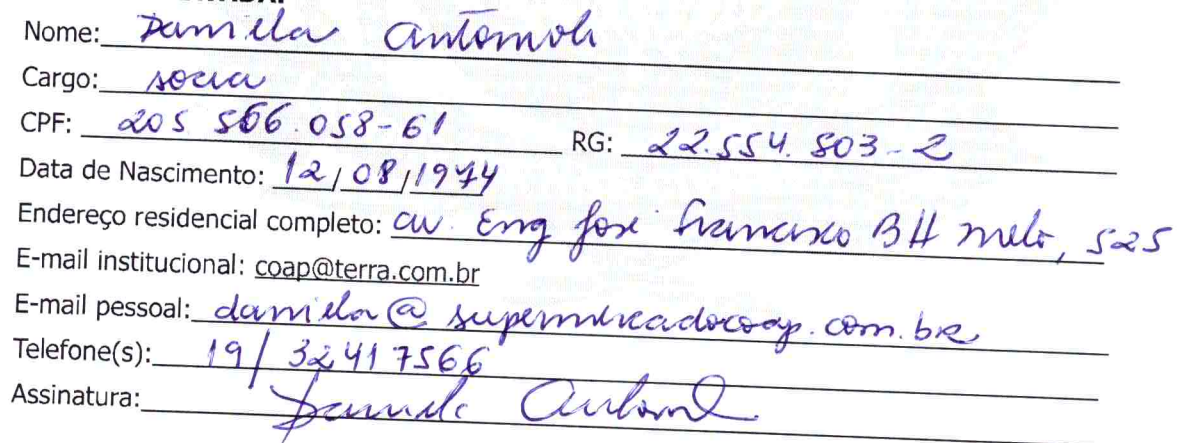 Nome: Daniela Antonioli
Cargo: socia
CPF: 205 566.058-61 RG: 22.554.803-2
Data de Nascimento: 12/08/1974
Endereço residencial completo: av. Eng José Francisco BH melo, 525
E-mail institucional: coap@terra.com.br
E-mail pessoal: daniela@supermercadocoap.com.br
Telefone(s): 19/ 32417566
Assinatura: Daniela